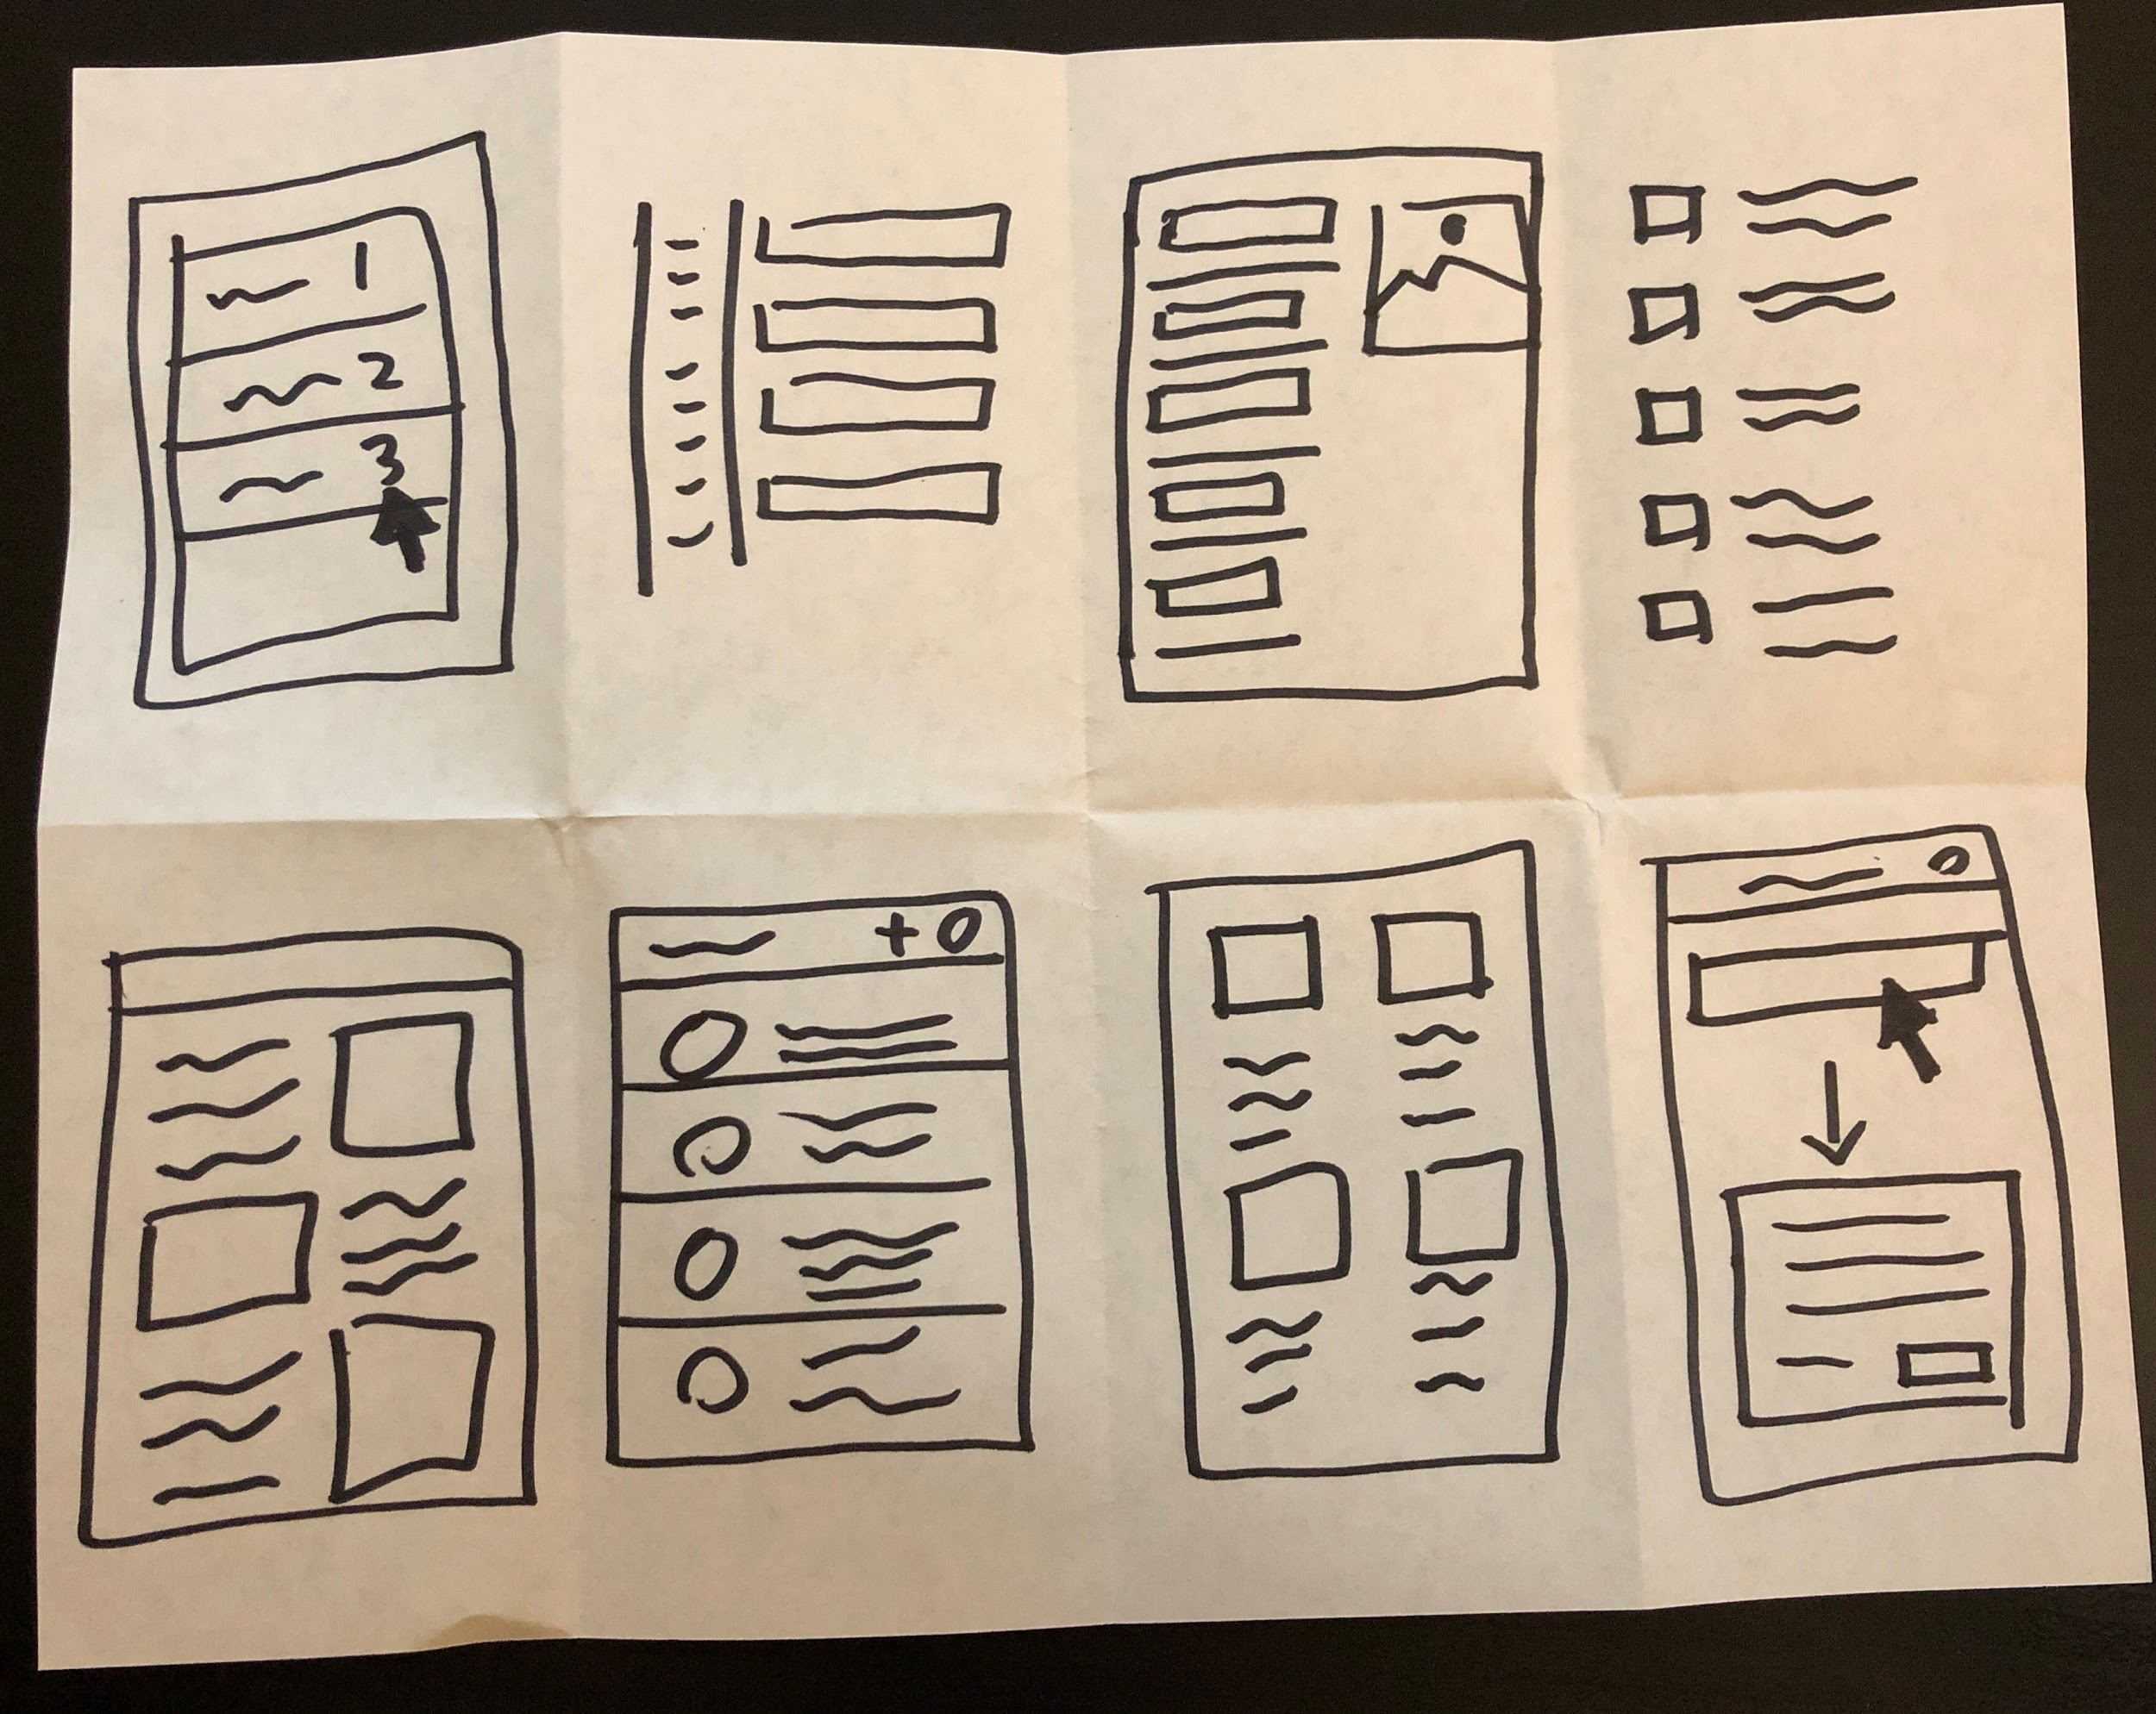 1
2
3
+